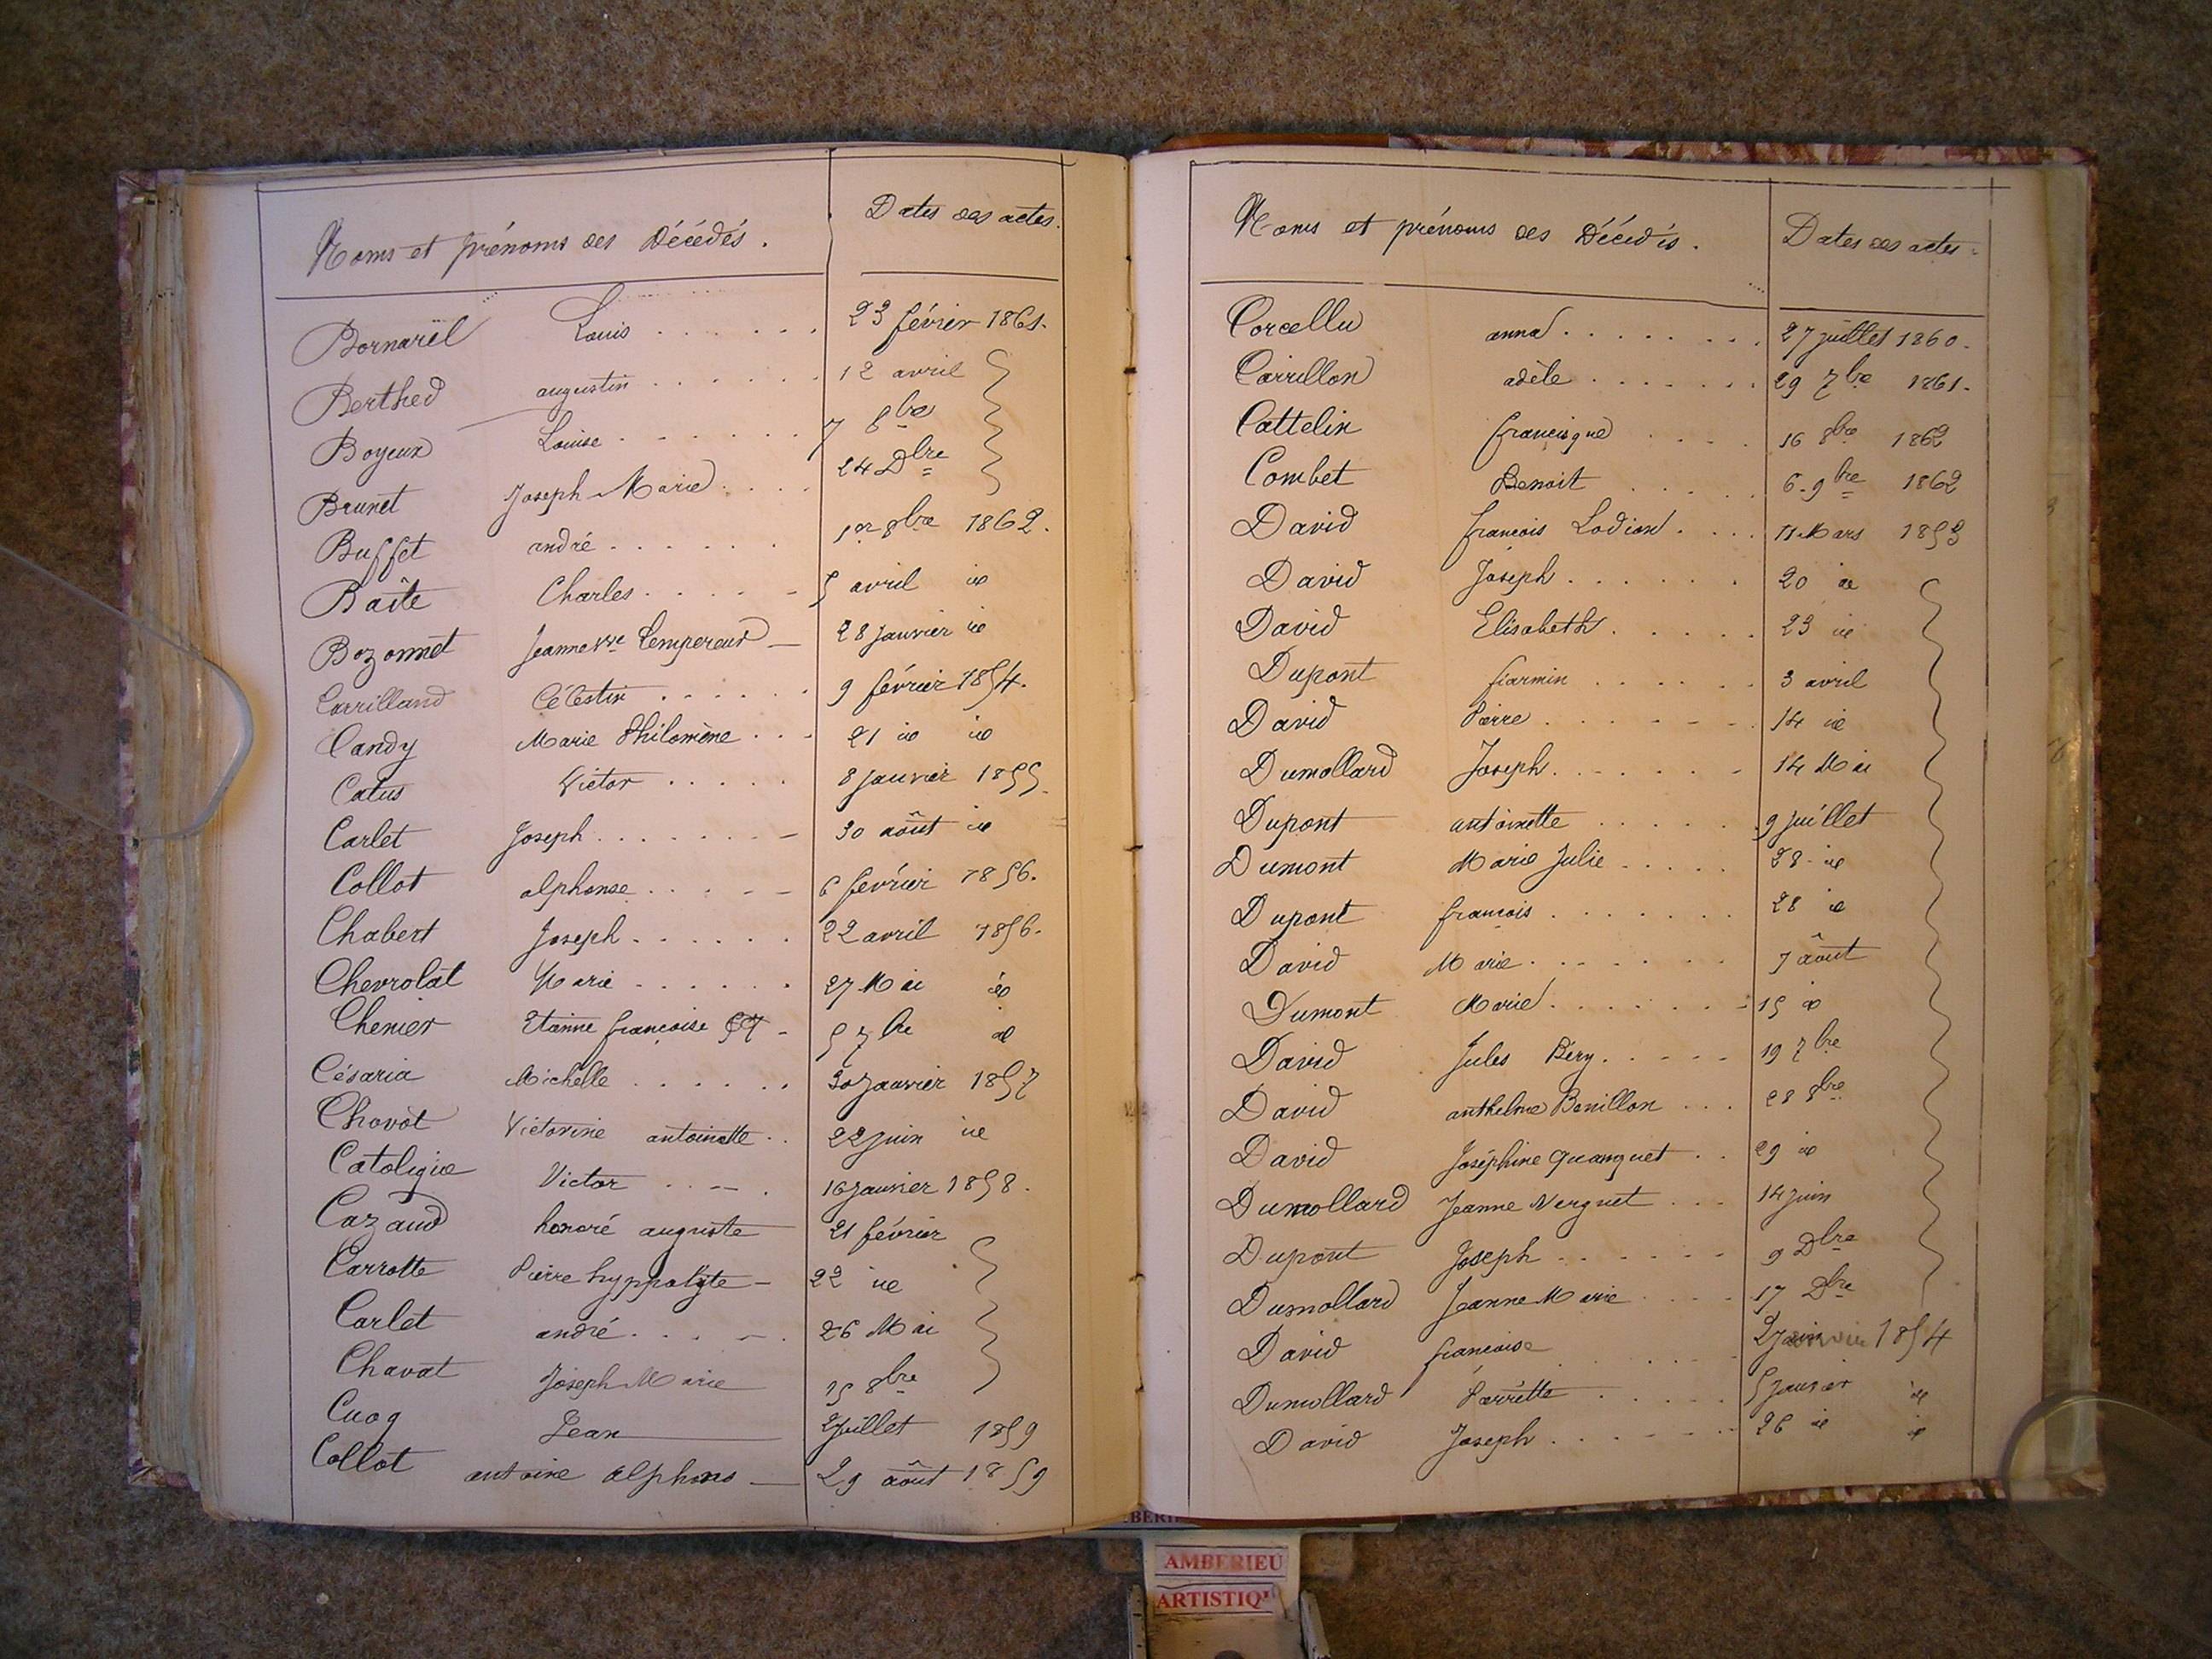 Noms et prénoms des Décédés. Dates des actes.
Bornarel Louis 23 févrer 1861.
Berthed augustin 12 avril
Boyeux Louise 7 8bre
Brunet Joseph Marie 24 Dbre
Buffet andré 1er 8bre 1862.
Baîte Charles 5 avril id
Bozonnet Jeanne Vve Lempereur 28 janvier id
Carrilland Célestin 9 février 1854.
Candy Marie Philomène 21 id id
Catus Victor 8 janvier 1855.
Carlet Joseph 30 août id
Collot alphonse 6 février 1856.
Chabert Joseph 22 avril 1856.
Chevrolat Marie 27 Mai id
Chenier Etainne françoise 5 7bre id
Césaria Michelle 30 Janvier 1857
Chovot Victorine antoinette 22 juin id
Catoligie Victor 16 Janvier 1858.
Cazaud honoré auguste 21 février
Carrotte Pierre hyppolyte 22 id
Carlet andré 26 Mai
Chavat Joseph Marie 15 8bre
Cuoq Jean 2 Juillet 1859
Collot antoine alphons 29 août 1859
Noms et prénoms des Décédés. Dates des actes.
Corcellu anna 27 juillet 1860.
Carrillon adèle 29 7bre 1861.
Cattelin francisque 16 8bre 1862
Combet Benoit 6. 9bre 1862
David françois Lodion 11 Mars 1853
David Joseph 20 id
David Elisabeth 23 id
Dupont fiarmin 3 avril
David Pierre 14 id
Dumollard Joseph 14 Mai
Dupont antoinette 9 juillet
Dumont Marie Julie 28 id
Dupont françois 28 id
David Marie 7 août
Dumont Marie 15 id
David Jules Bény 19 7bre
David anthelme Bonillon 28 8bre
David Joséphine Quanquet 29 id
Dumollard Jeanne Nerguet 14 juin
Dupont Joseph 9 Dbre
Dumollard Jeanne Marie 17 Dbre
David françoise 2 Janvier 1854
Dumollard Pierrette 5 Janvier id
David Joseph 26 id id
AMBERIEU
ARTISTIQ